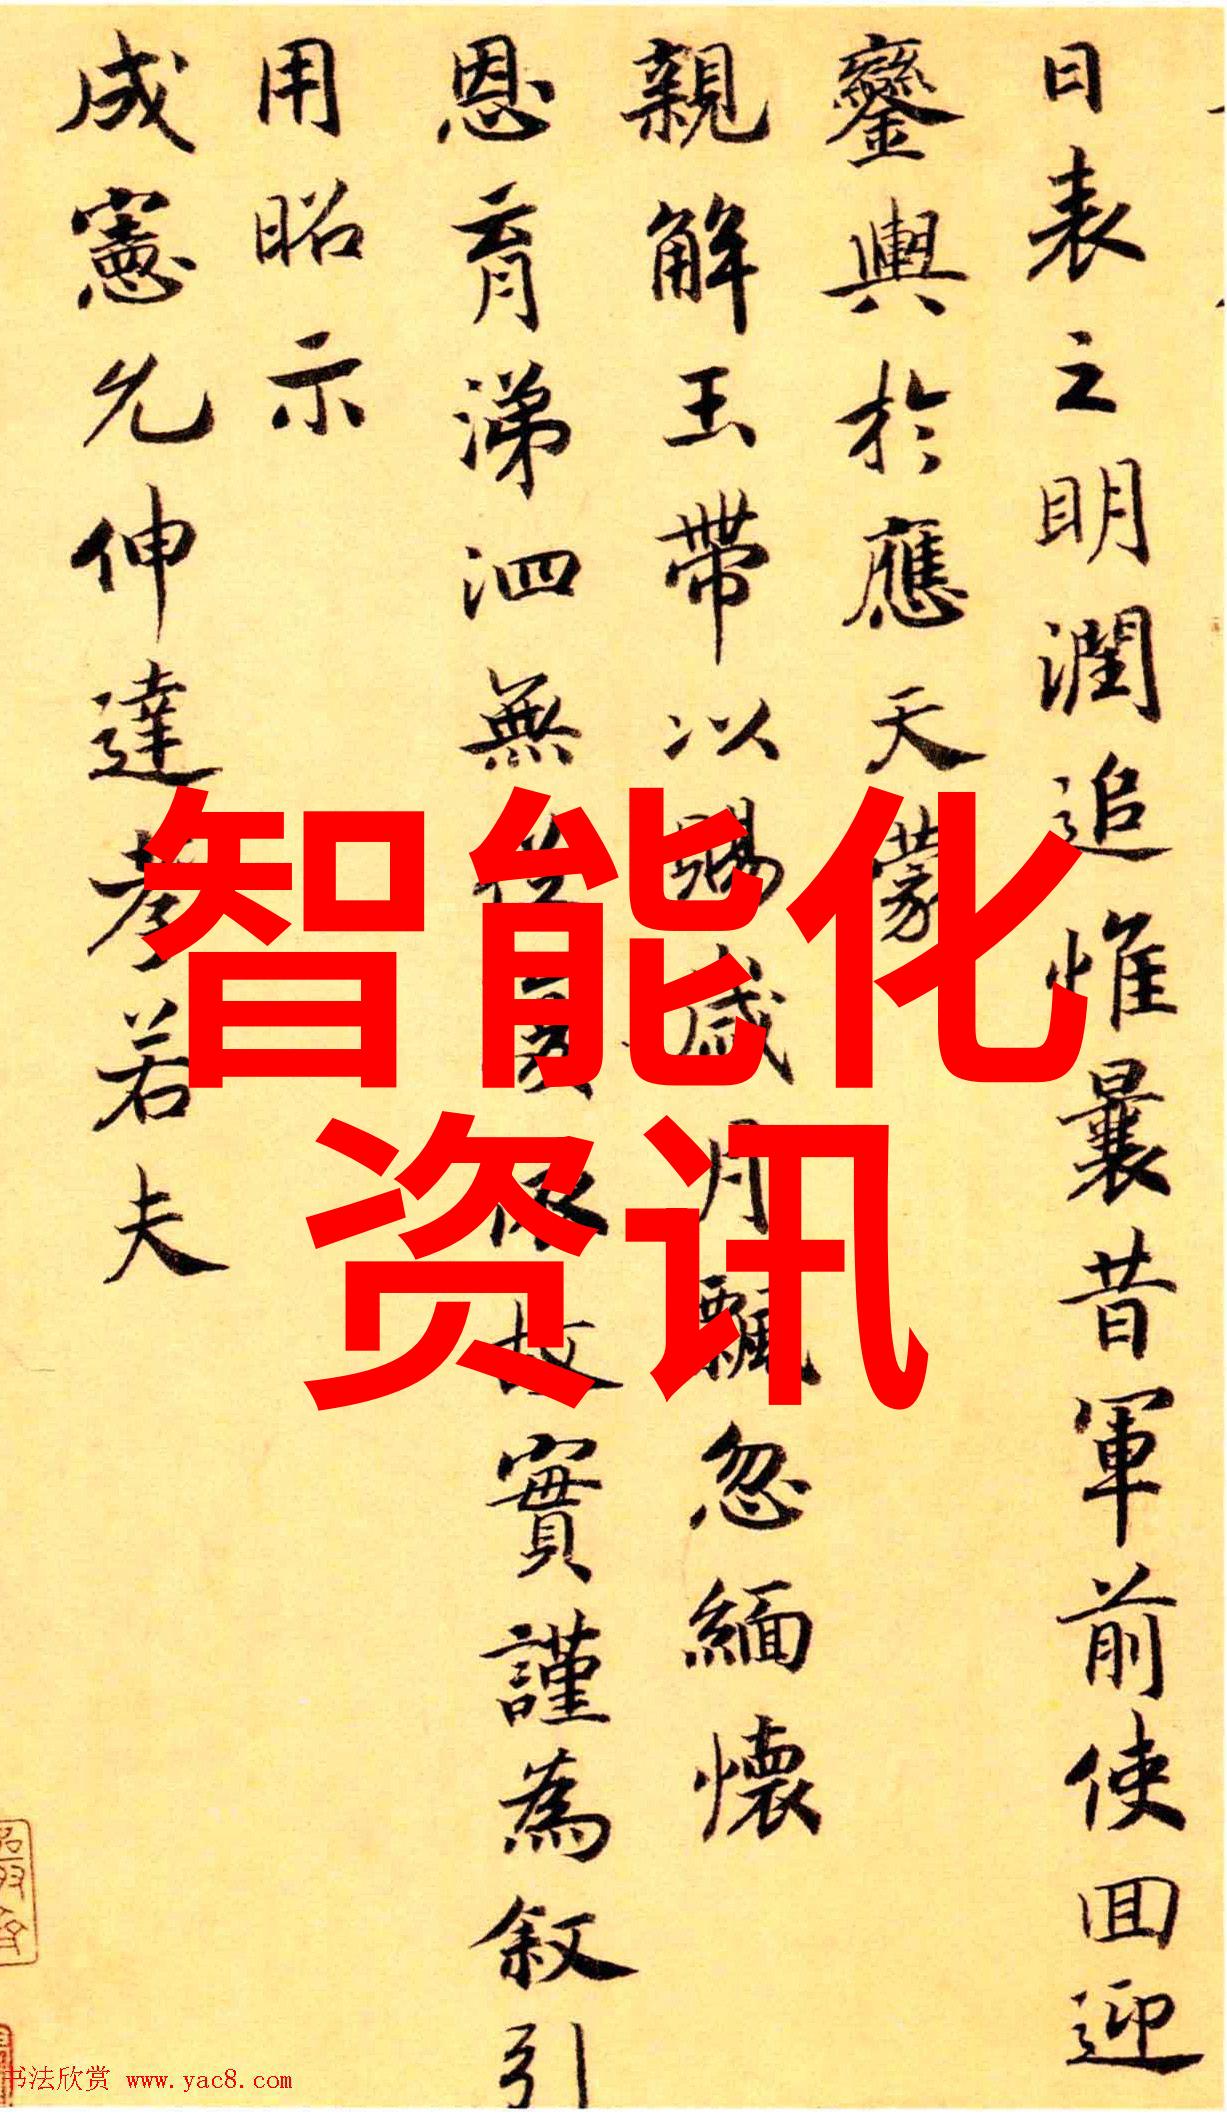 日表之明潤追惟曩昔軍前使回迎
鑾輿於應天蒙
親解玉帶以賜歲月飄忽緬懷
恩育涕泗無從爰依故實謹為叙引
用昭示
成憲允伸達孝若夫
智能化
资讯
书法欣赏 www.yac8.com